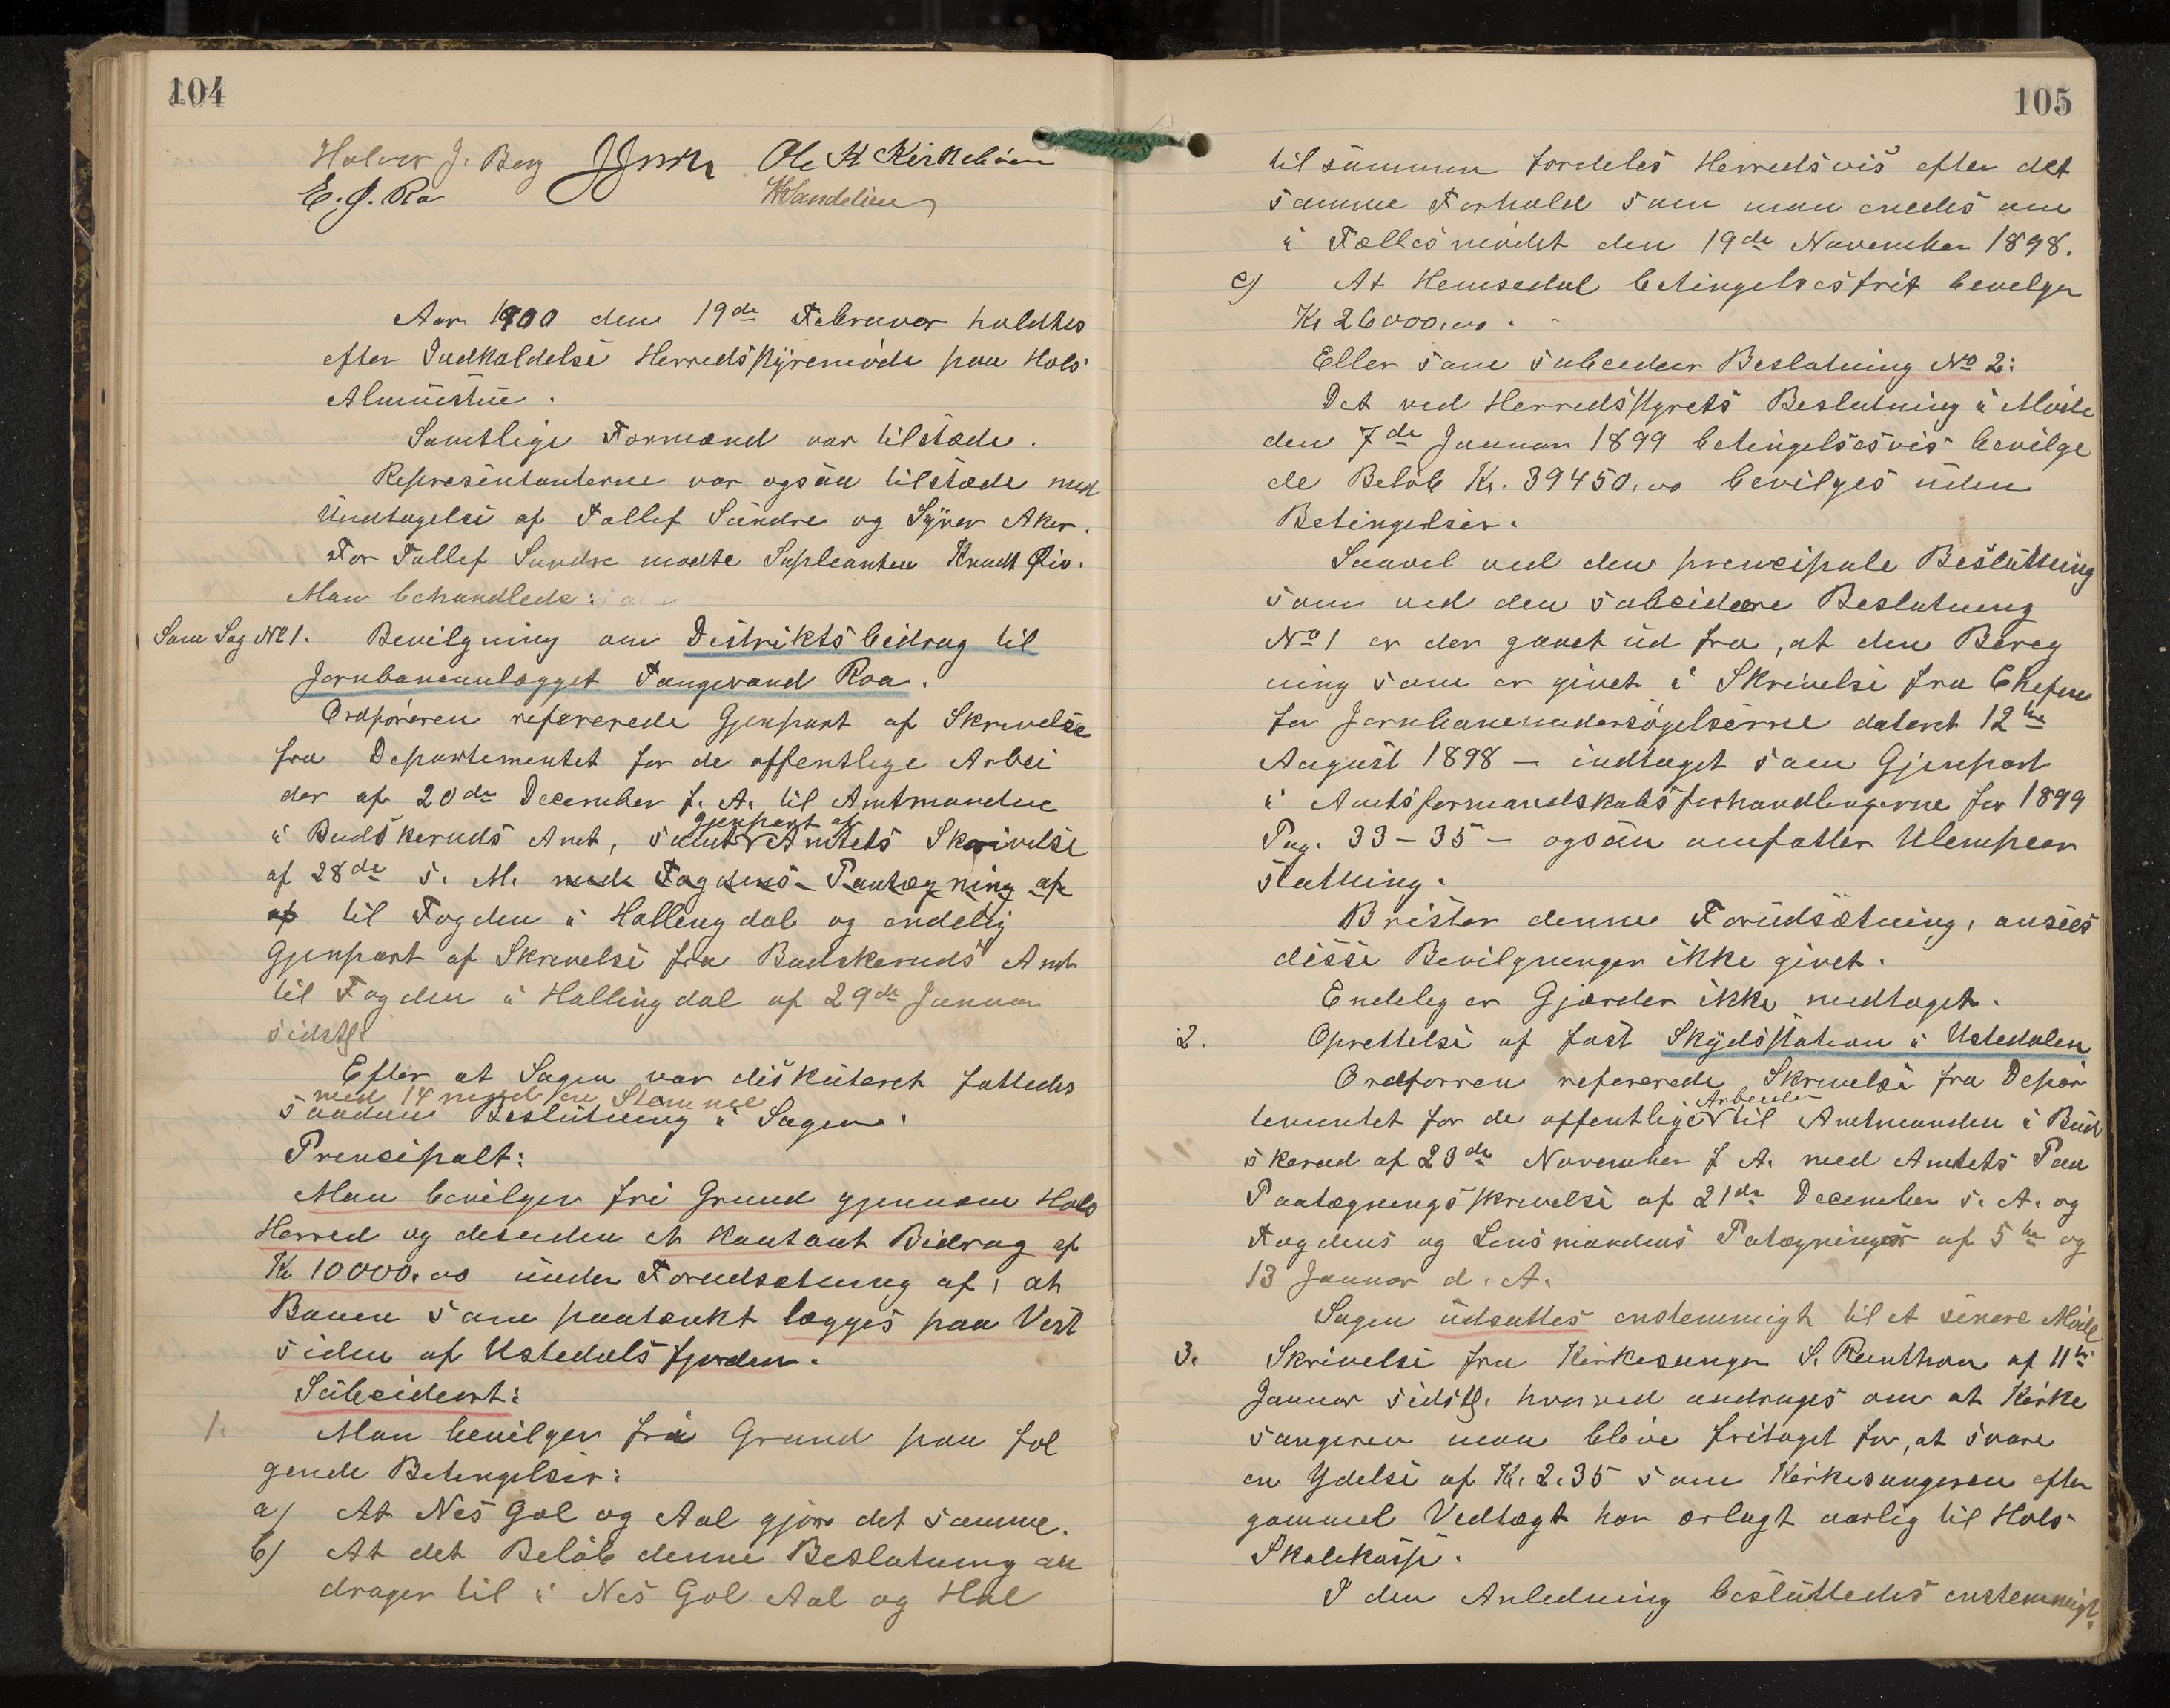 104
Halvor J. Berg Ole K Kirkebøen
E. J. Ro
Aar 1900 den 19de Februar holdtes
efter Indkaldelse Herredsstyremøde paa Hols
Almuestue.
Samtlige Formænd var tilstæde.
Repræsentanterne var ogsaa tilstæde med
Undtagelse af Tollef Sundre og Syver Aker.
For Tollef Sundre mødte Supleanten Knudt
Man behandlede:
Som Sag No 1. Bevilgning om Distriktsbidrag til
Jernbaneanlægget Tangevand Roa.
Ordføreren refererede Gjenpart af Skrivelse
fra Departementet for de offentlige Arbei
der af 20de December f. A. til Amtmanden
gjenpart af
i Budskeruds Amt, samt Amtets Skrivelse
af 28de s. M. med Fogdens Paategning af
af til Fogden i Hallingdal og endelig
Gjenpart af Skrivelse fra Budskeruds Amt
til Fogden i Hallingdal af 29de Januar
sidstl.
Efter at Sagen var diskuteret fattedes
med 14 mod en Stemme
saadan Beslutning i Sagen:
Prencipalt:
Man bevilger fri Grund gjennem Hols
Herred og desuden et kontant Bidrag af
Kr 10000.00 under Forudsætning af, at
Banen som paatænkt lægges paa Vest
siden af Ustedalsfjorden.
Subsidært:
1. Man bevilger fri Grund paa føl
gende Betingelser:
a) At Nes Gol og Aal gjør det samme.
b) At det Beløb denne Beslutning an
drager til i Nes Gol Aal og Hol
105
tilsammen fordeles Herredsvis efter det
samme Forhold som man enedes om
i Fællesmødet den 19de November 1898.
c) At Hemsedal betingelsesfrit bevilger
Kr 26000.00.
Eller som subsidær Beslutning No 2:
Det ved Herredsstyrets Beslutning i Møde
den 7de Januar 1899 betingelsesvis bevilge
de Beløb Kr. 39450.00 bevilges uden
Betingelser.
Saavel ved den prencipale Beslutning
som ved den subsidære Beslutning
No 1 er der gaaet ud fra, at den Bereg
ning som er givet i Skrivelse fra Chefen
for Jernbaneundersøgelserne dateret 12te
August 1898 – indtaget som Gjenpart
i Amtsformandskabsforhandlingerne for 1899
Pag. 33-35 – ogsaa omfatter Ulemper
statning.
Brister denne Forudsætning, ansees
disse Bevilgninger ikke givet.
Endelig er Gjærder ikke medtaget.
2. Oprettelse af fast Skydsstation i Ustedalen
Ordføreren refererede Skrivelse fra Depar
Arbeider
tementet for de offentlige til Amtmanden i Bud
skerud af 23de November f A. med Amtets Paa
Paategningsskrivelse af 21de December s. A. og
Fogdens og Lensmandens Pategninger af 5te og
13 Januar d. A.
Sagen udsattes enstemmigt til et senere Møde
3. Skrivelse fra Kirkesanger S. af 11te
Januar sidstl. hvorved andrages om at Kirke
sangeren maa blive fritaget for, at svare
en Ydelse af Kr. 2.35 som Kirkesangeren efter
gammel Vedtægt har erlagt aarlig til Hols
Skolekasse.
I den Anledning besluttedes enstemmigt: